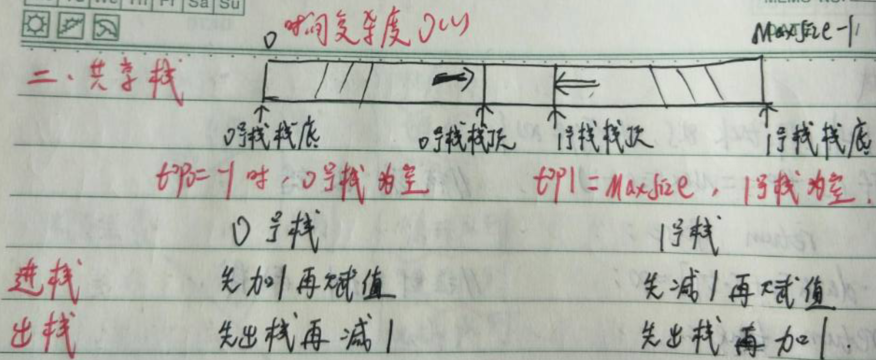 Fri Sa Su
0 时间复杂度 O(1) MaxSize-1
二、共享栈
0号栈栈底 0号栈栈顶 1号栈栈顶 1号栈栈底
top0=-1时 0号栈为空 top1=MaxSize,1号栈为空.
0号栈 1号栈
进栈 先加1再赋值 先减1再赋值
出栈 先出栈再减1 先出栈再加1.